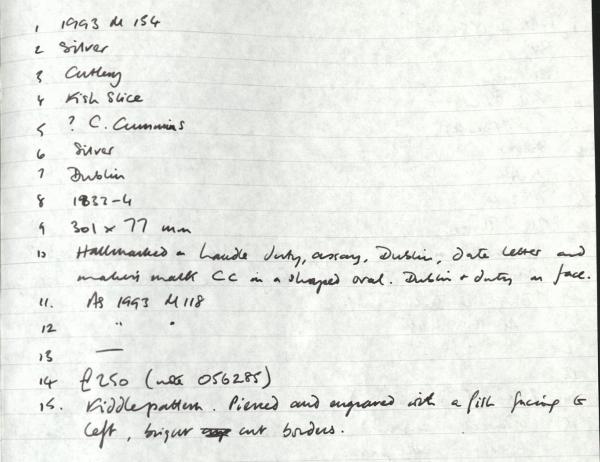 1 1993 M 154
2 Silver
3 Cutlery
4 Fish Slice
5 ? C. Cummins
6 Silver
7 Dublin
8 1833-4
9 301 x 77 mm
10 Hallmarked on handle duty, assay, Dublin, date letter and
maker's mark CC in a shaped oval. Dublin + duty on face.
11. As 1993 M 118
12 " "
13 —
14 £250 (note 056285)
15. Fiddle pattern. Pierced and engraved with a fish facing to
left, bright cut borders.